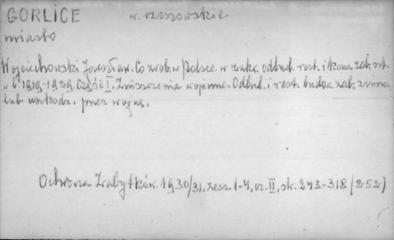 GORLICE w. rzeszowskie
miasto
Wojciechowski Jarosław. Co zrob. w Polsce w zakr. odbud. rest. i konserw. zab. szt.
w l. 1919-1929. Część I. Zniszczenia wojenne. Odbud. i rest. budow. zab. zniszcz.
lub uszkodz. przez wojnę.
Ochrona Zabytków. 1930/31, zesz. 1-4, cz. II, str. 243-318 (252)